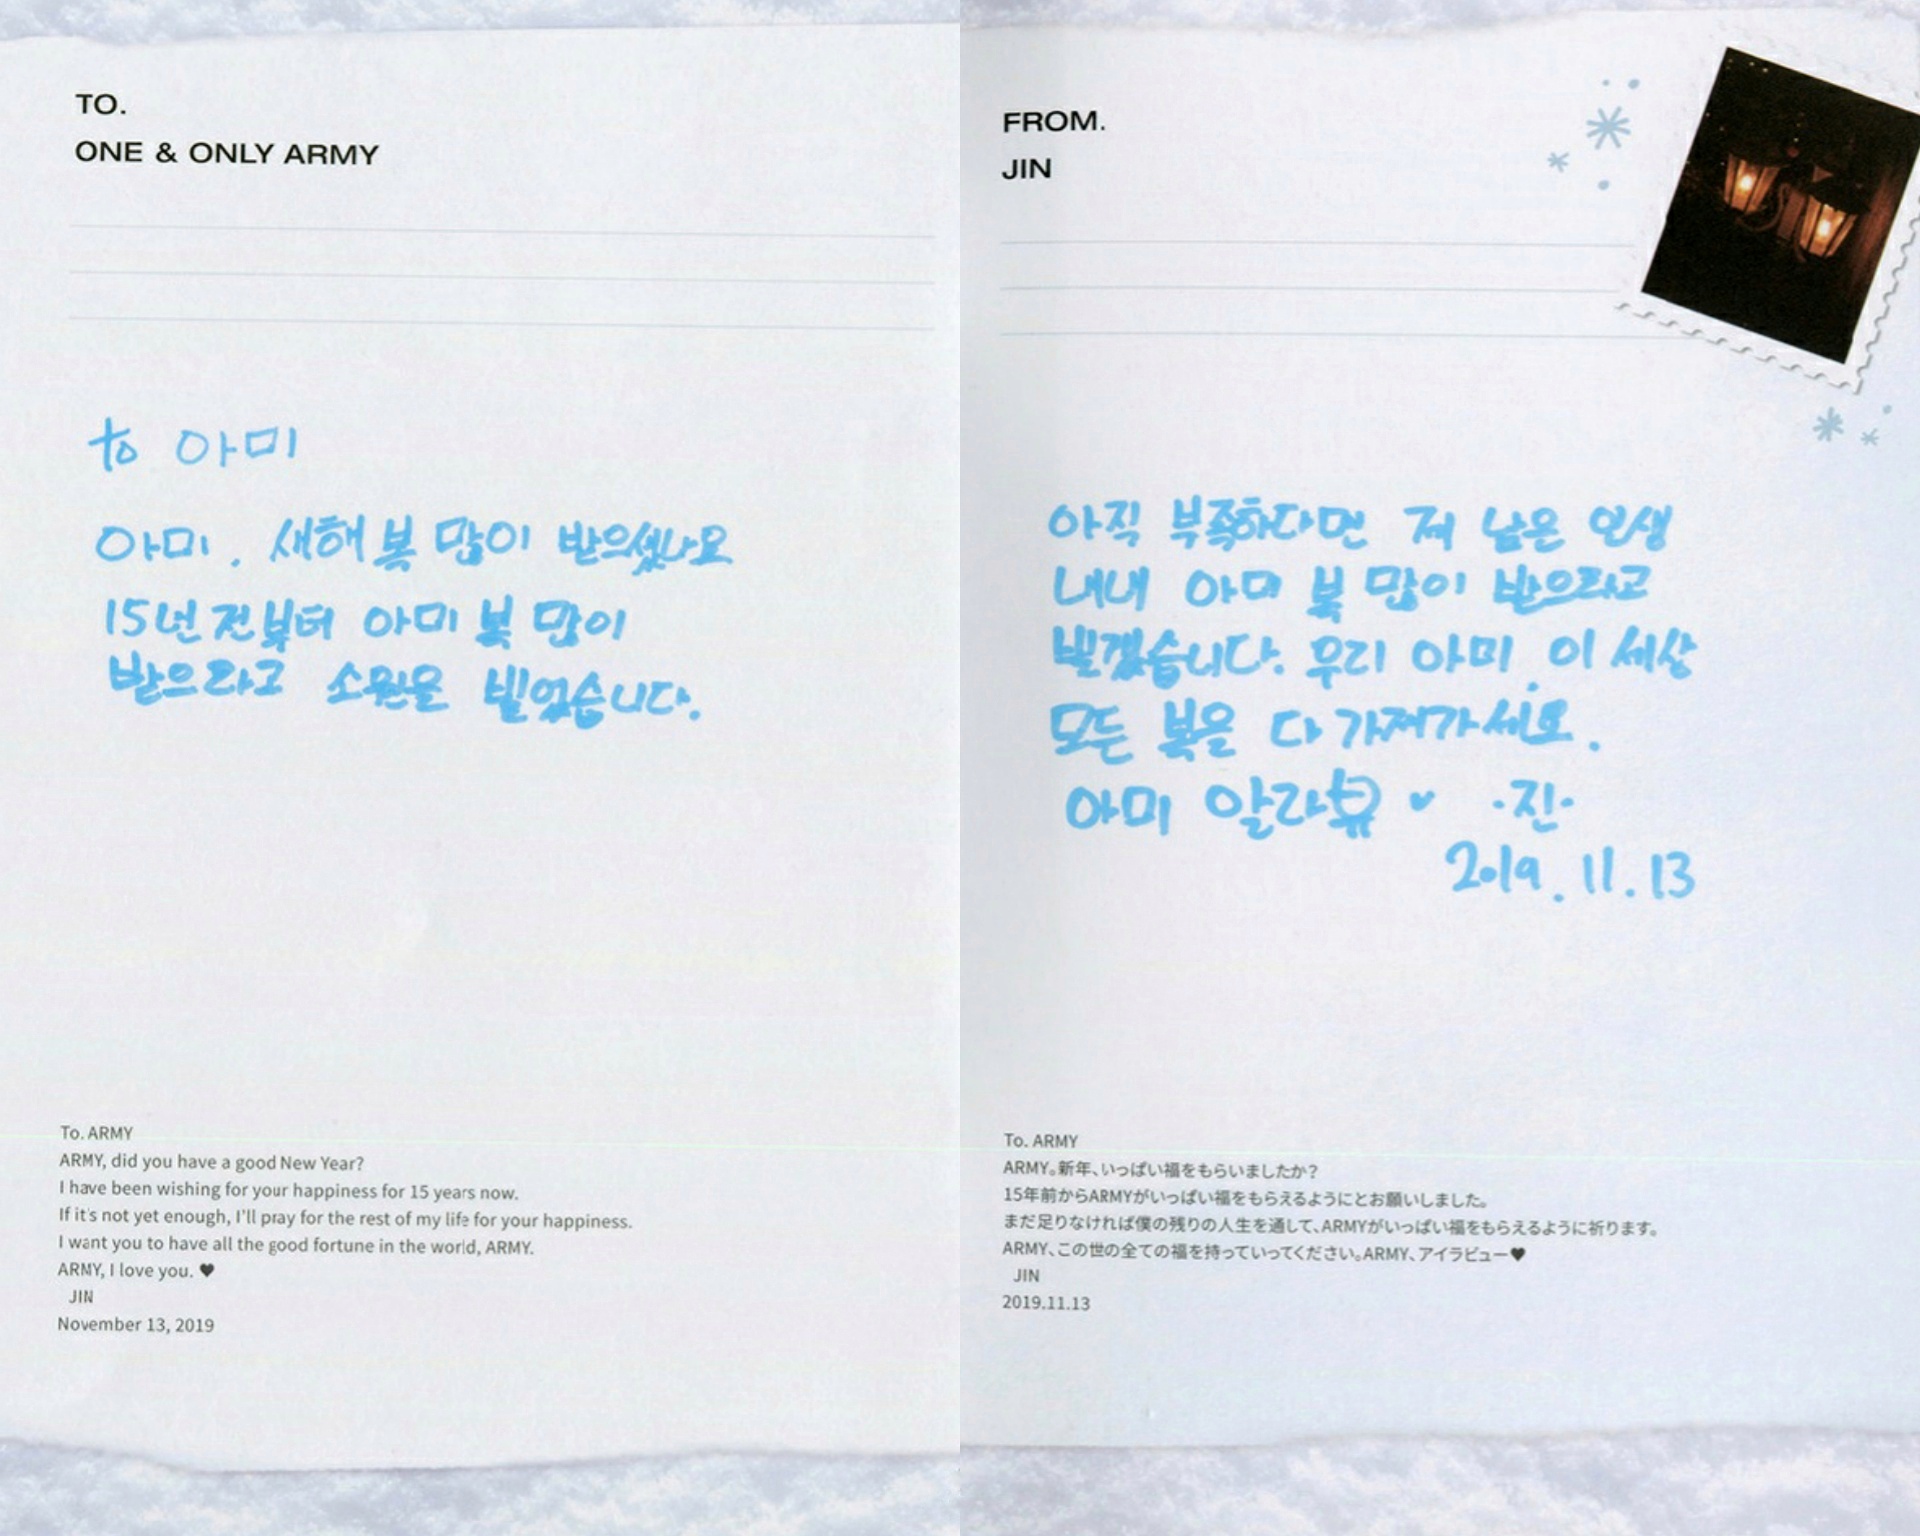 TO.
ONE & ONLY ARMY
to 아미
아미. 새해 복 많이 받으셨나요
15년 전부터 아미 복 많이
받으라고 소원을 빌었습니다.
To. ARMY
ARMY, did you have a good New Year?
I have been wishing for your happiness for 15 years now.
If it's not yet enough, I'll pray for the rest of my life for your happiness.
I want you to have all the good fortune in the world, ARMY.
ARMY, I love you. ♥
JIN
November 13, 2019
FROM.
JIN
아직 부족하다면 저 남은 인생
내내 아미 복 많이 받으라고
빌겠습니다. 우리 아미, 이 세상
모든 복을 다 가져가세요.
아미 알라뷰 ♥ ·진·
2019. 11. 13
To. ARMY
ARMY。新年、いっぱい福をもらいましたか？
15年前からARMYがいっぱい福をもらえるようにとお願いしました。
まだ足りなければ僕の残りの人生を通して、ARMYがいっぱい福をもらえるように祈ります。
ARMY、この世の全ての福を持っていってください。ARMY、アイラビュー♥
JIN
2019.11.13